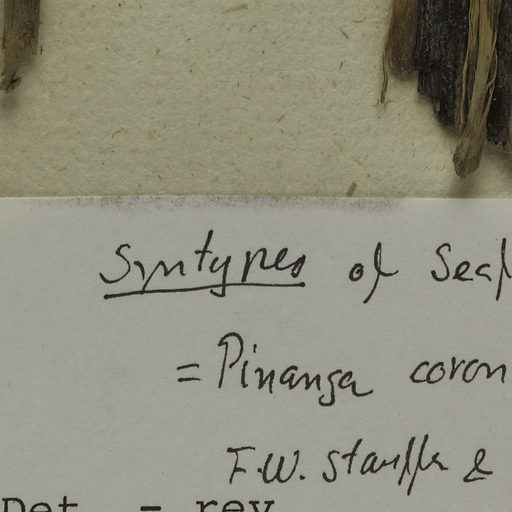 Syntypes of Seaf
= Pinanga coron
F.W. Stauffer &
Det. - rev